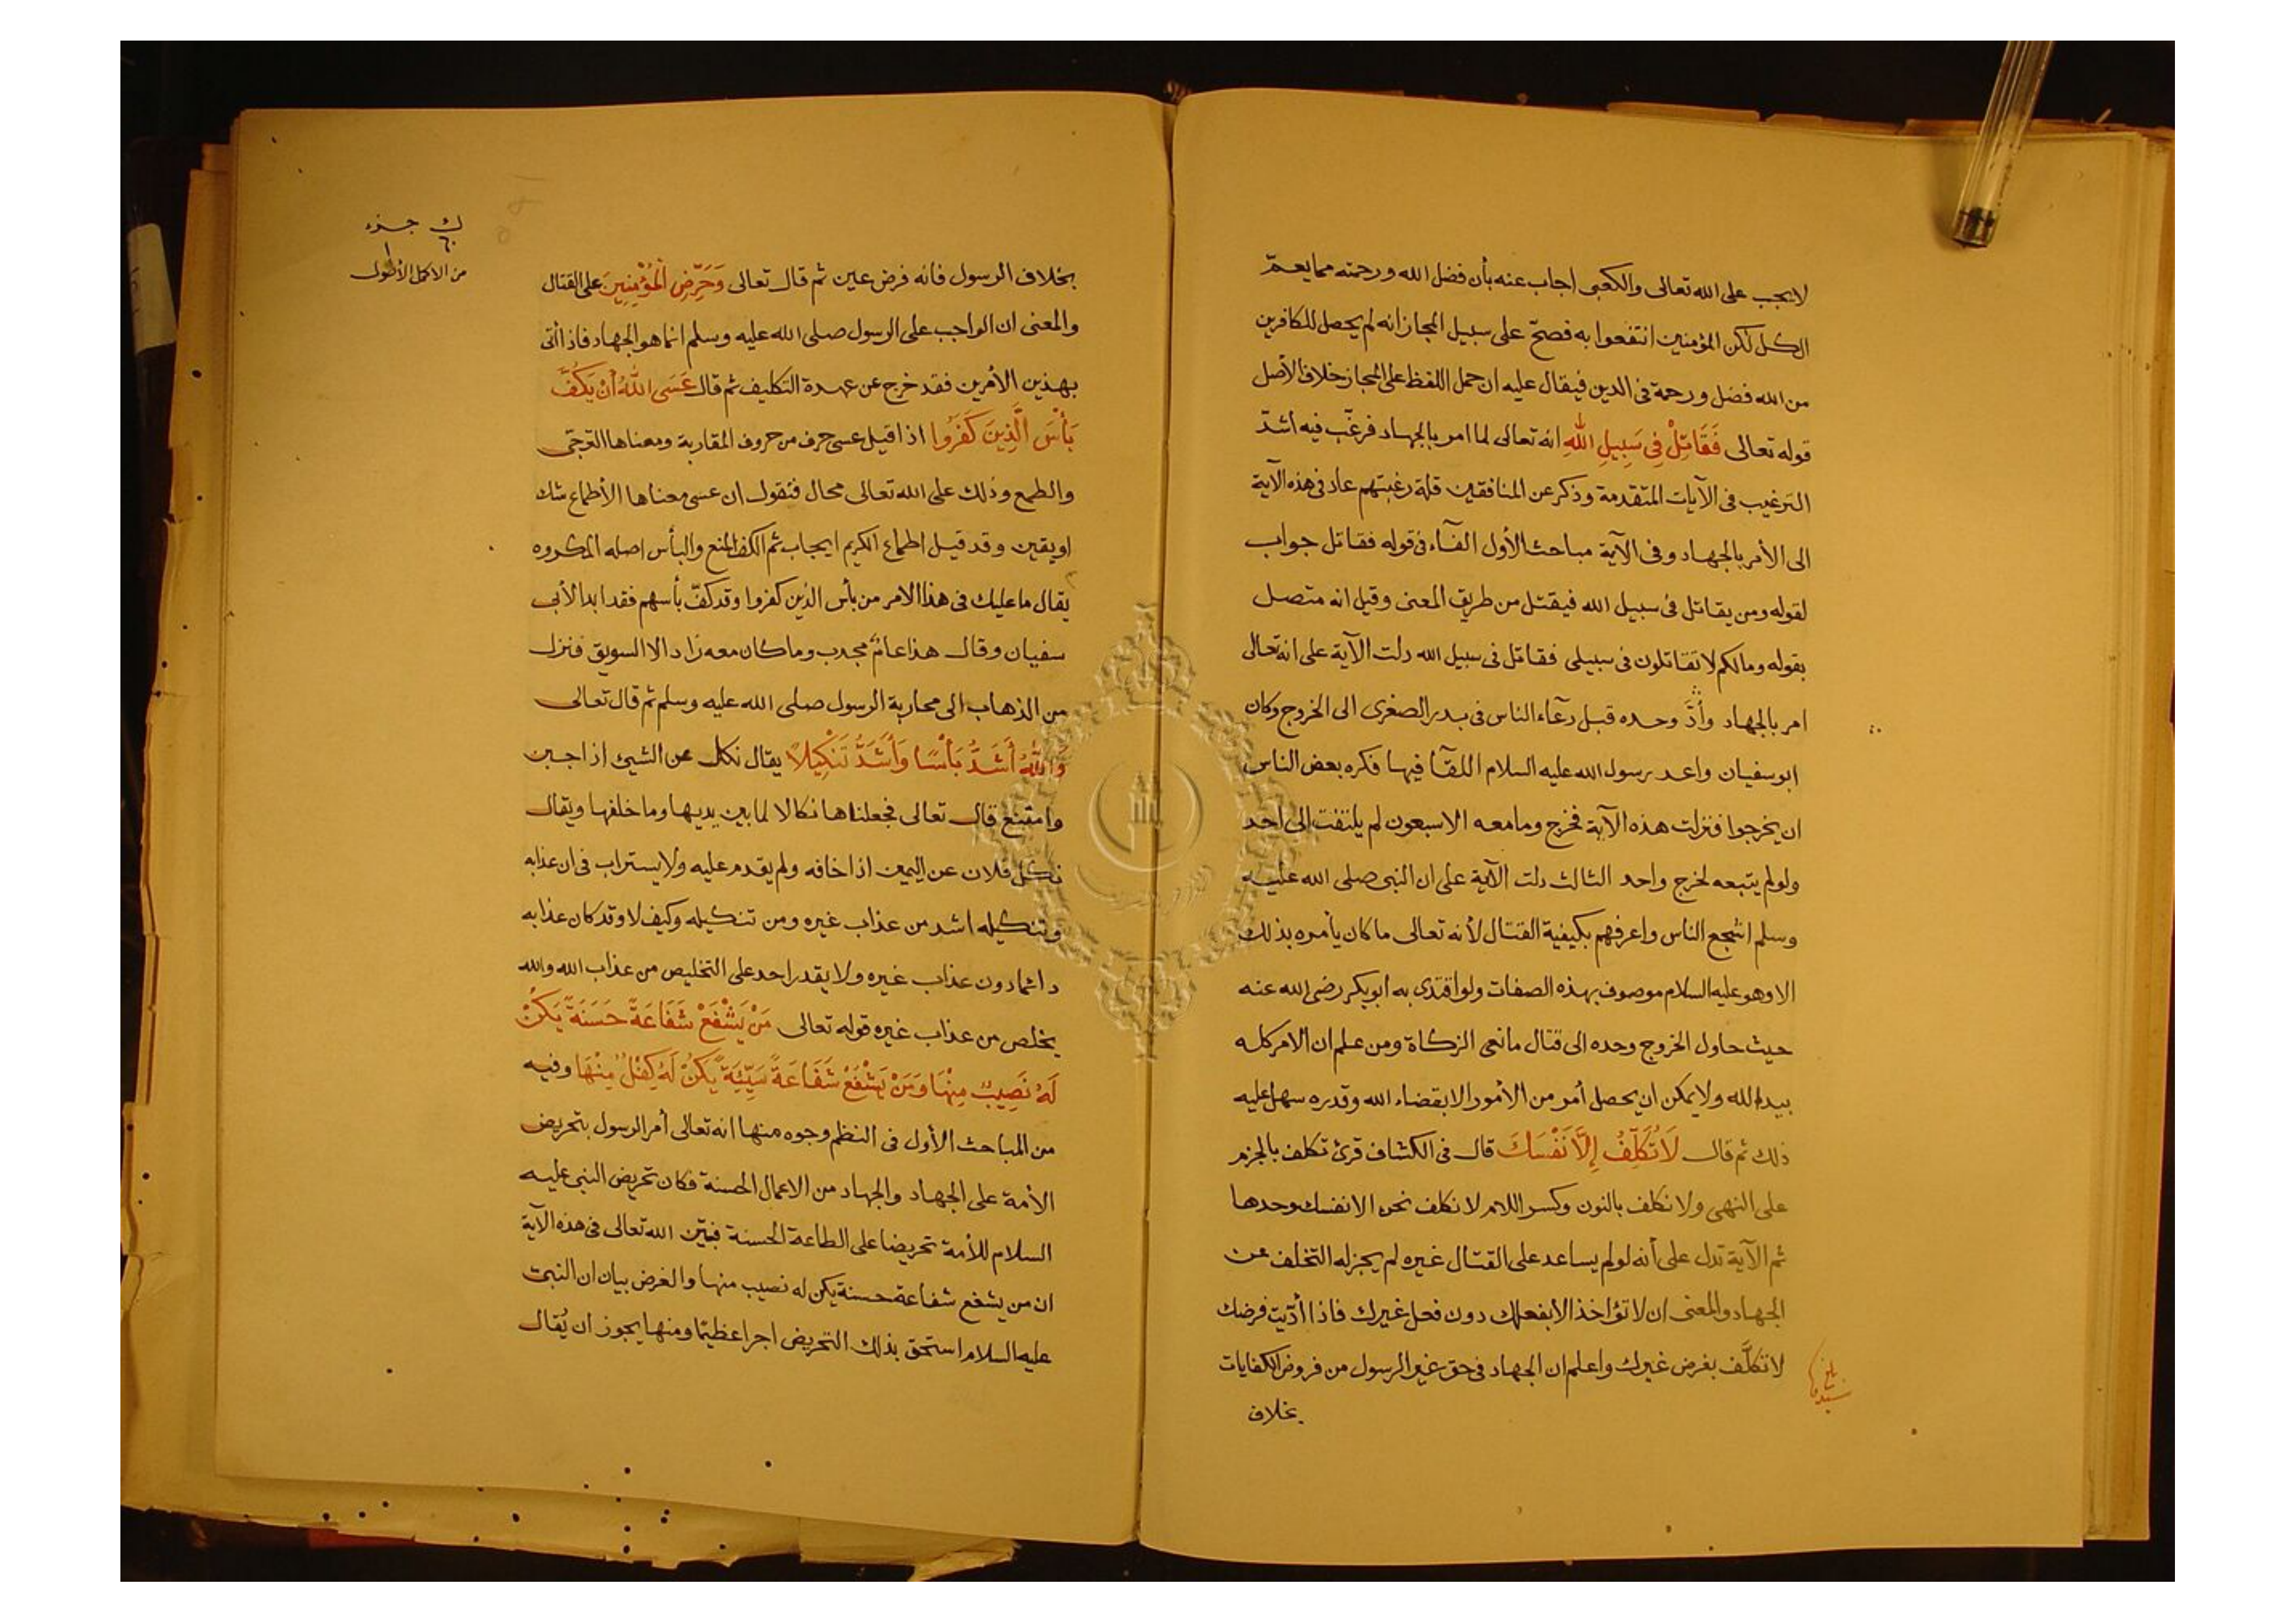 لايجب على الله تعالى والكعبى اجاب عنه بأن فضل الله ورحمته مما يعمّ
الكل لكن المؤمنين انتفعوا به فصحّ على سبيل المجاز انه لم يحصل للكافرين
من الله فضل ورحمة فى الدين فيقال عليه ان حمل اللفظ على المجاز خلاف الأصل
قوله تعالى فَقَاتِلْ فِى سَبِيلِ اللهِ انه تعالى لما امر بالجهاد فرغّب فيه اشدّ
الترغيب فى الآيات المتقدمة وذكر عن المنافقين قلة رغبتهم عاد فى هذه الآية
الى الأمر بالجهاد وفى الآية مباحث الأول الفآء فى قوله فقاتل جواب
لقوله ومن يقاتل فى سبيل الله فيقتل من طريق المعنى وقيل انه متصل
بقوله ومالكم لا تقاتلون فى سبيلى فقاتل فى سبيل الله دلت الآية على انه تعالى
امر بالجهاد وحده قبل دعآء الناس فى بدر الصغرى الى الخروج وكان
ابو سفيان واعد رسول الله عليه السلام اللقآ فيها فكره بعض الناس
ان يخرجوا فنزلت هذه الآية فخرج ومامعه الاسبعون لم يلتفت الى احد
ولولم يتبعه لخرج واحد الثالث دلت الآية على ان النبى صلى الله عليه
وسلم اشجع الناس واعرفهم بكيفية القتال لأنه تعالى ما كان يأمره بذلك
الا وهو عليه السلام موصوف بهذه الصفات ولو اقتدى به ابوبكر رضى الله عنه
حيث حاول الخروج وحده الى قتال مانعى الزكاة ومن علم ان الامر كله
بيد الله ولا يمكن ان يحصل أمر من الأمور الا بقضاء الله وقدره سهل عليه
ذلك ثم قال لَا تُكَلَّفُ إِلَّا نَفْسَكَ قال فى الكشاف قرئ تكلف بالجزم
على النهى ولا نكلف بالنون وكسر اللام لا نكلف نحن الا نفسك وحدها
ثم الآية تدل على أنه لولم يساعد على القتال غيره لم يجز له التخلف عن
الجهاد والمعنى ان لا تؤاخذ الا بفعلك دون فعل غيرك فاذا أدّيت فرضك
لا تكلَّف بفرض غيرك واعلم ان الجهاد فى حق غير الرسول من فروض الكفايات
بخلاف
جزء
من الاكمل الأطول
بخلاف الرسول فانه فرض عين ثم قال تعالى وَحَرِّضِ الْمُؤْمِنِينَ على القتال
والمعنى ان الواجب على الرسول صلى الله عليه وسلم انما هو الجهاد فاذا أتى
بهذين الأمرين فقد خرج عن عهدة التكليف ثم قال عَسَى اللهُ أَنْ يَكُفَّ
بَأْسَ الَّذِينَ كَفَرُوا اذا قيل عسى حرف من حروف المقاربة ومعناها الترجّى
والطمع وذلك على الله تعالى محال فنقول ان عسى معناها الأطماع شك
او يقين وقد قيل اطماع الكريم ايجاب ثم الكف المنع والبأس اصله المكروه
يقال ما عليك فى هذا الامر من بأس الذين كفروا وقد كفّ بأسهم فقد ابدا لأبى
سفيان وقال هذا عام مجدب وما كان معه زاد الا السويق فنزل
من الذهاب الى محاربة الرسول صلى الله عليه وسلم ثم قال تعالى
وَاللهُ أَشَدُّ بَأْسًا وَأَشَدُّ تَنْكِيلًا يقال نكل عن الشيئ اذا جبن
وامتنع قال تعالى فجعلناها نكالا لما بين يديها وما خلفها ويقال
نكل فلان عن اليمين اذا خافه ولم يقدم عليه ولا يستراب فى ان عذابه
وتنكيله اشد من عذاب غيره ومن تنكيله وكيف لا وقد كان عذابه
دائما دون عذاب غيره ولا يقدر احد على التخليص من عذاب الله والله
يخلص من عذاب غيره قوله تعالى مَنْ يَشْفَعْ شَفَاعَةً حَسَنَةً يَكُنْ
لَهُ نَصِيبٌ مِنْهَا وَمَنْ يَشْفَعْ شَفَاعَةً سَيِّئَةً يَكُنْ لَهُ كِفْلٌ مِنْهَا وفيه
من المباحث الأول فى النظم وجوه منها انه تعالى أمر الرسول بتحريض
الأمة على الجهاد والجهاد من الاعمال الحسنة فكان تحريض النبى عليه
السلام للأمة تحريضا على الطاعة الحسنة فبيّن الله تعالى فى هذه الآية
ان من يشفع شفاعة حسنة يكن له نصيب منها والغرض بيان ان النبى
عليه السلام استحق بذلك التحريض اجرا عظيما ومنها يجوز ان يُقال